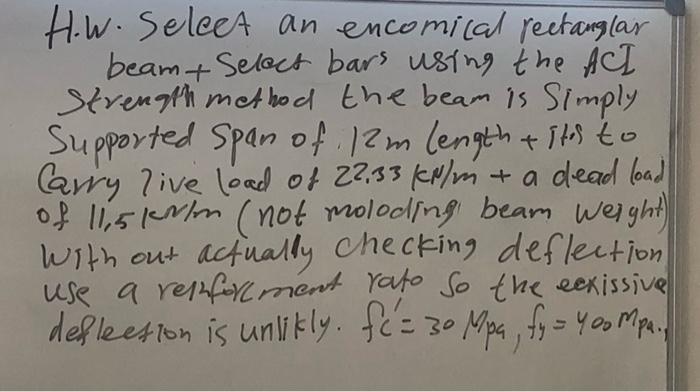 H.W. Select an encomical rectanglar
beam + Select bars using the ACI
Strength method the beam is Simply
Supported span of 12m length + it is to
Carry live load of 22,33 kN/m + a dead load
of 11,5 kN/m (not moloding beam weight)
With out actually checking deflection
use a reinforcment rato so the eexissive
deflection is unlikly. fc' = 30 Mpa, fy = 400 Mpa.,